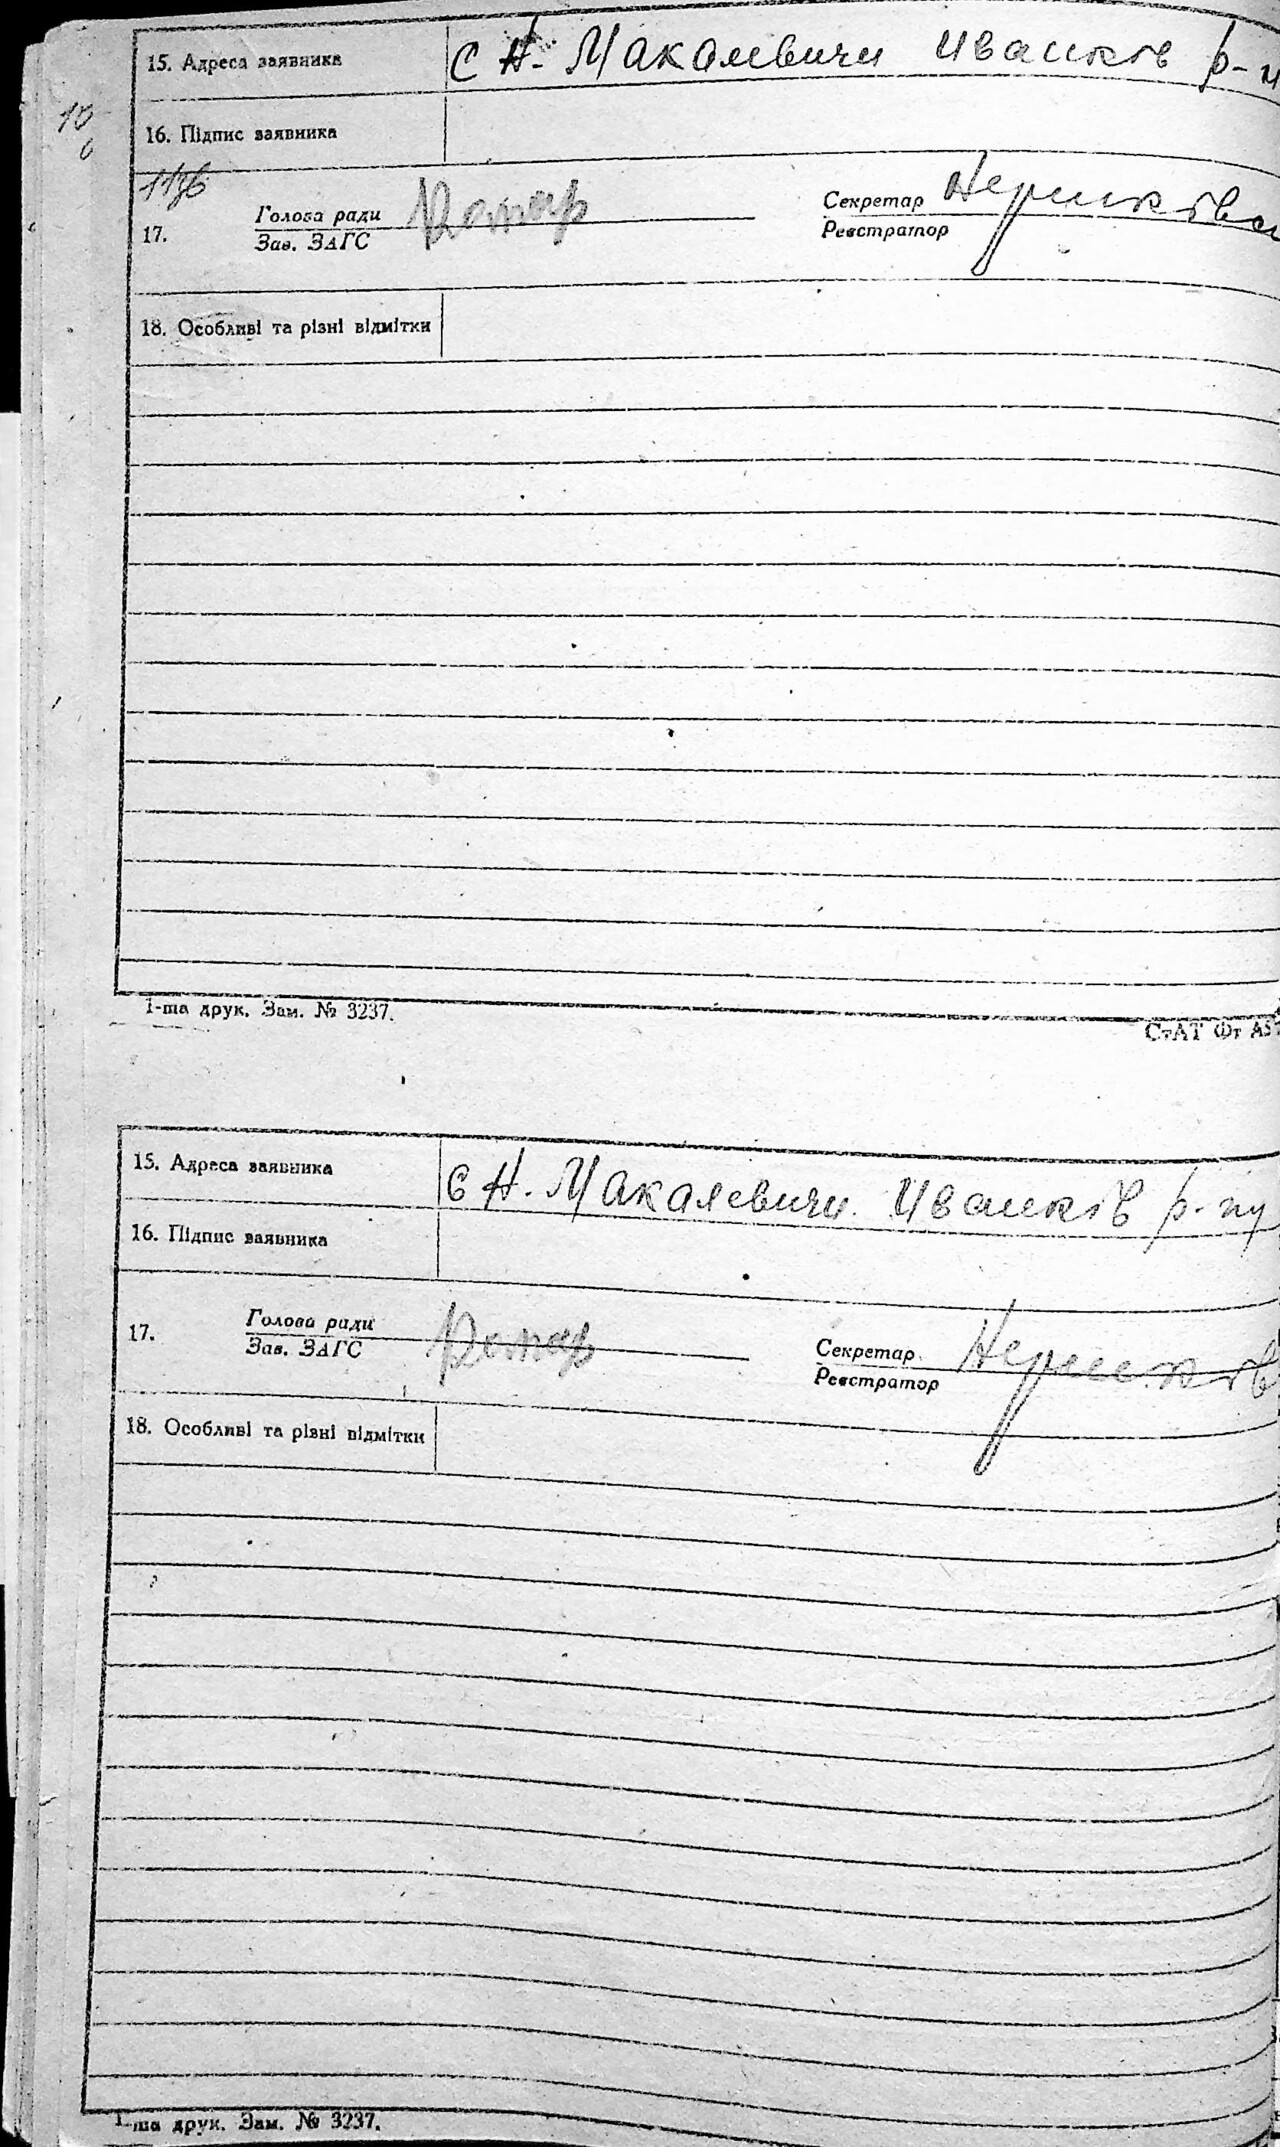 15. Адреса заявника С Н. Макалевичи Иванків р-н
16. Підпис заявника
10
6
1136
17. Голова ради Секретар
Зав. ЗАГС Реєстратор
18. Особливі та різні відмітки
1-ша друк. Зам. № 3237.
СтАТ Фт А5
15. Адреса заявника С Н. Макалевичи Иванків р-ну
16. Підпис заявника
17. Голова ради Секретар
Зав. ЗАГС Реєстратор
18. Особливі та різні відмітки
1-ша друк. Зам. № 3237.